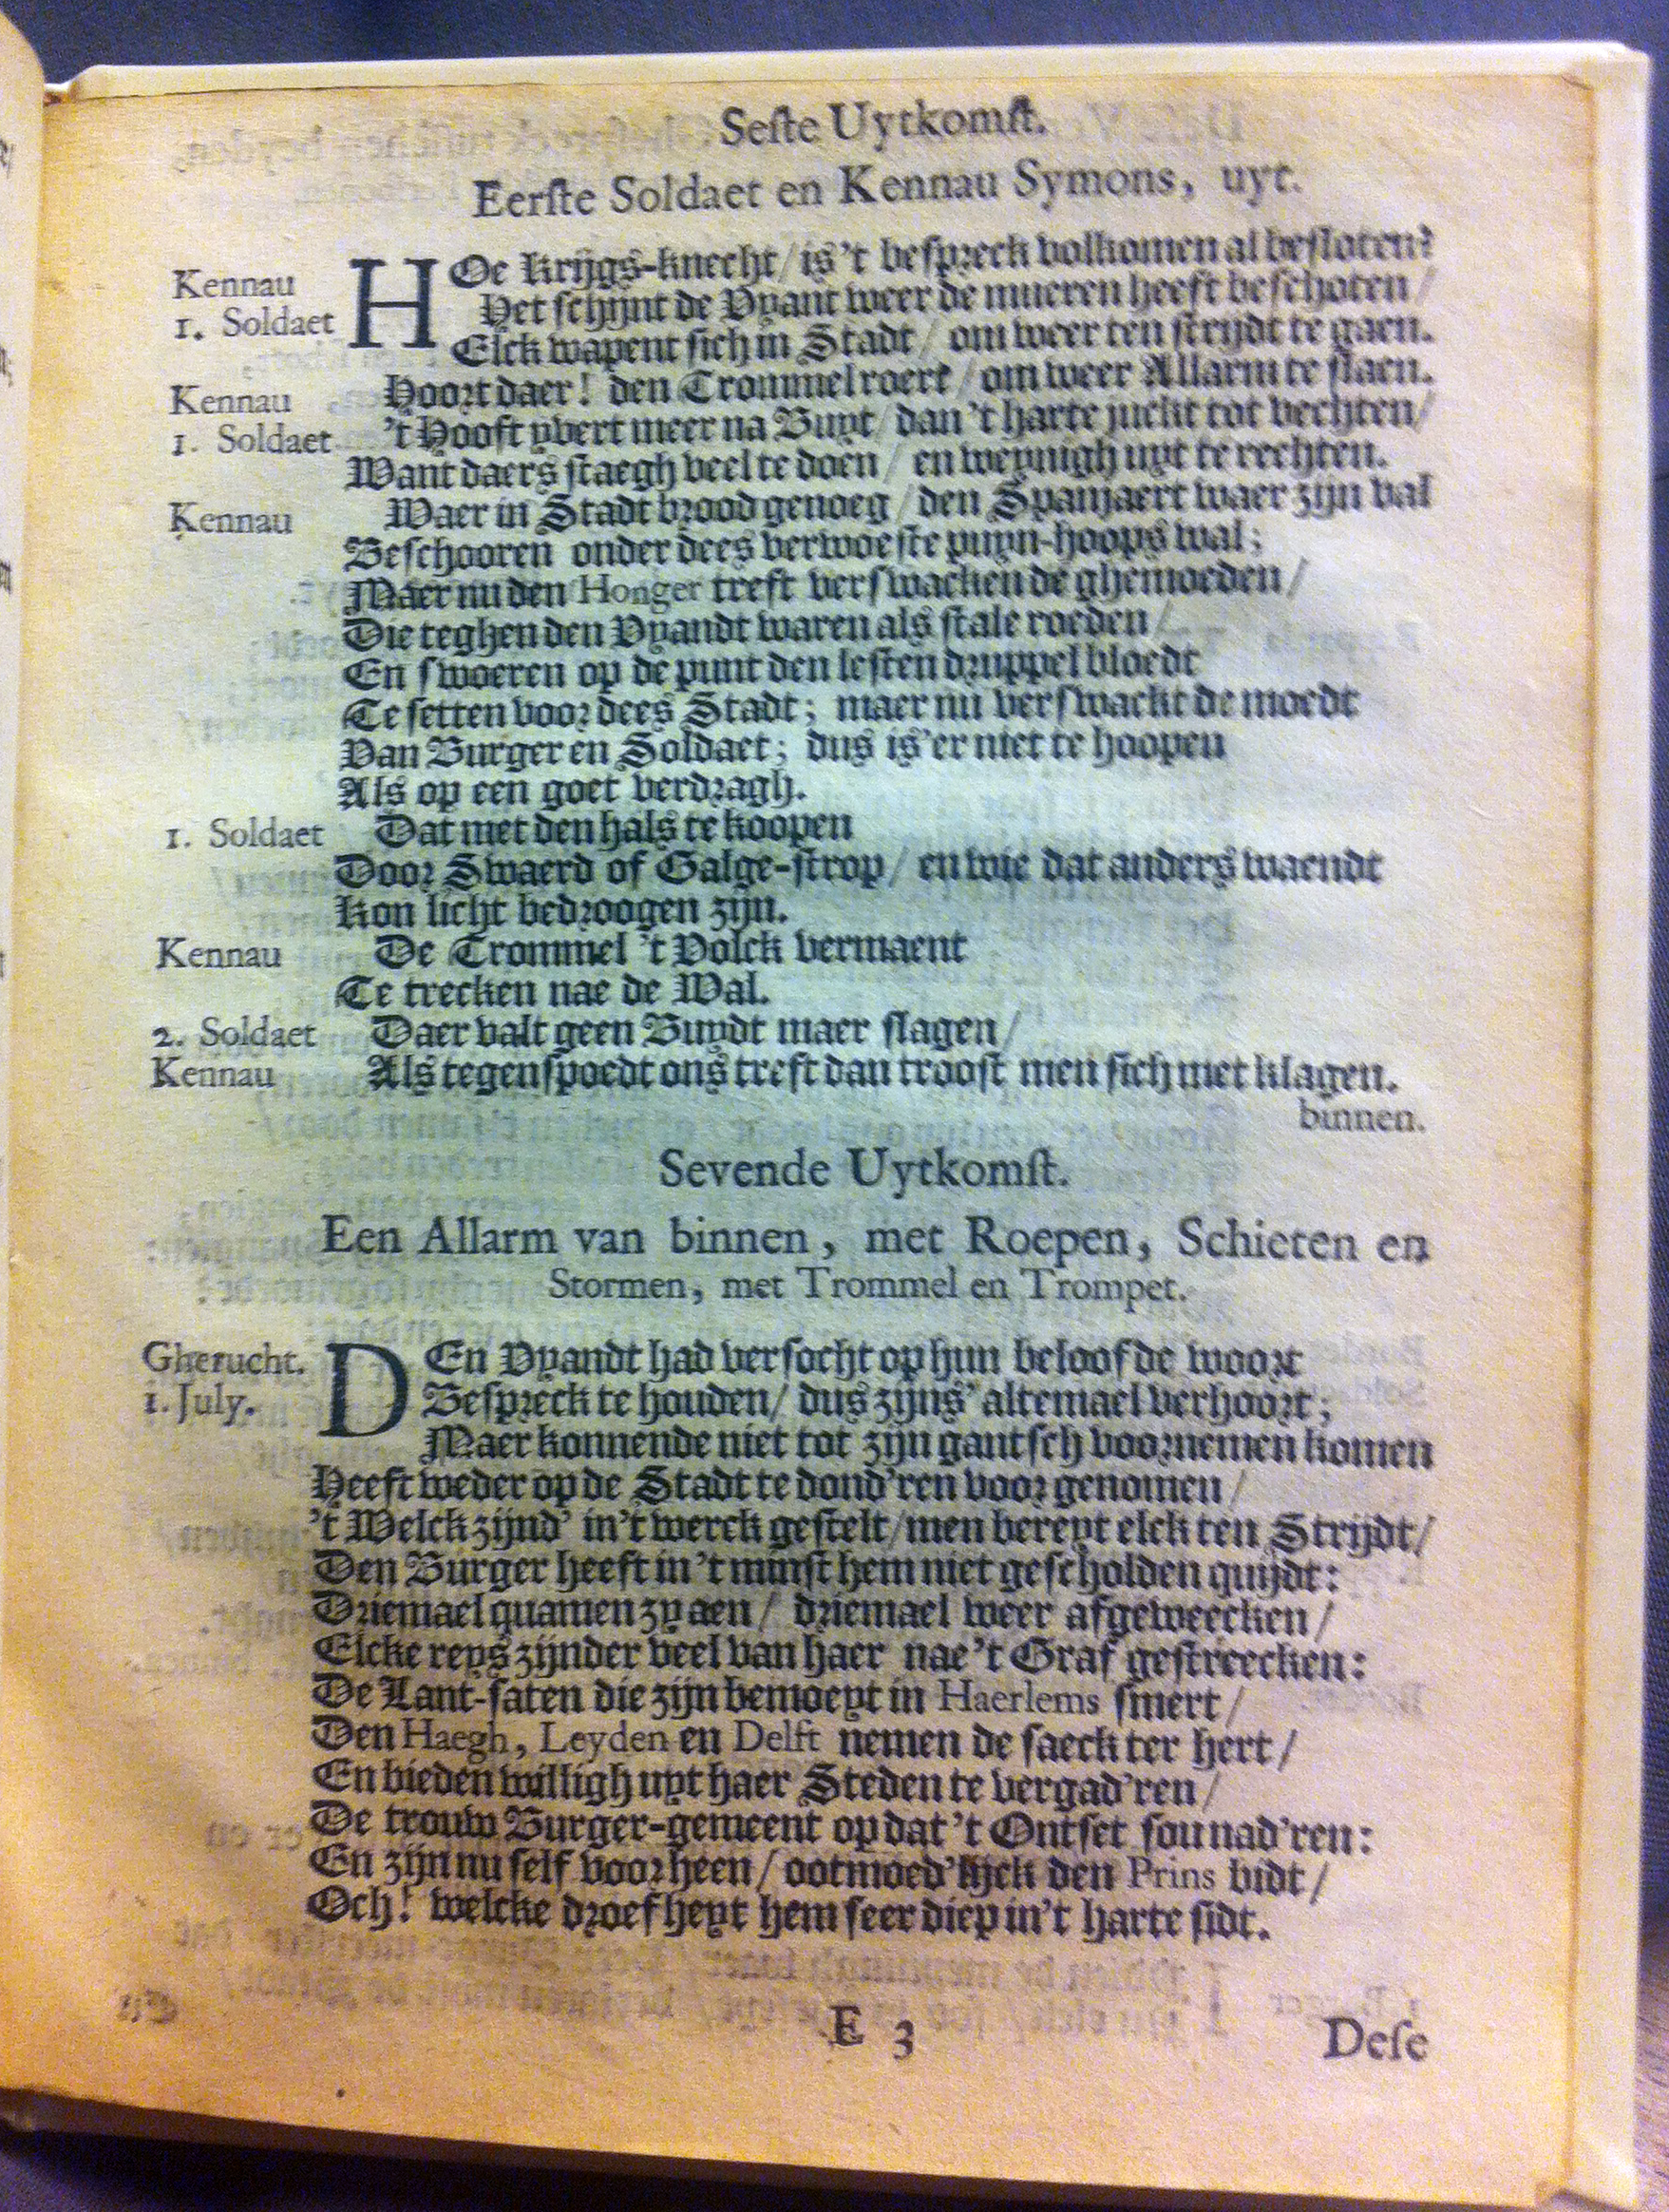 Seste Uytkomst.
Eerste Soldaet en Kennau Symons, uyt.
Kennau HOe krijgs-knecht / is 't bespreck volkomen al besloten?
1. Soldaet Het schijnt de Vyant weer de mueren heeft beschoten /
Elck wapent sich in Stadt / om weer ten strijdt te gaen.
Kennau Hoort daer! den Trommel roert / om weer Allarm te slaen.
1. Soldaet 't Hooft yvert meer na Buyt / dan 't harte juckt tot vechten /
Want daer's staegh veel te doen / en weynigh uyt te rechten.
Kennau Waer in Stadt brood genoeg / den Spanjaert waer zijn val
Beschooren onder dees verwoeste puyn-hoops wal;
Maer nu den Honger treft verswackende ghemoeden /
Die teghen den Vyandt waren als stale roeden /
En swoeren op de punt den lesten druppel bloedt
Te setten voor dees Stadt; maer nu verswackt de moedt
Van Burger en Soldaet; dus is'er niet te hoopen
Als op een goet verdragh.
1. Soldaet Dat met den hals te koopen
Door Swaerd of Galge-strop / en wie dat anders waendt
Kon licht bedroogen zijn.
Kennau De Trommel 't Volck vermaent
Te trecken nae de Wal.
2. Soldaet Daer valt geen Buydt maer slagen /
Kennau Als tegenspoedt ons treft dan troost men sich met klagen.
binnen.
Sevende Uytkomst.
Een Allarm van binnen, met Roepen, Schieten en
Stormen, met Trommel en Trompet.
Gherucht. DEn Vyandt had versocht op hun beloofde woort
1. July. Bespreck te houden / dus zijns' altemael verhoort;
Maer konnende niet tot zijn gantsch voornemen komen
Heeft weder op de Stadt te dond'ren voor genomen /
't Welck zijnd' in't werck gestelt / men bereyt elck ten Strijdt /
Den Burger heeft in 't minst hem niet gescholden quijdt:
Driemael quamen zy aen / driemael weer afgeweecken /
Elcke reys zijnder veel van haer nae 't Graf gestreecken:
De Lant-saten die zijn bemoeyt in Haerlems smert /
Den Haegh, Leyden en Delft nemen de saeck ter hert /
En bieden willigh uyt haer Steden te vergad'ren /
De trouw Burger-gemeent op dat 't Ontset sou nad'ren:
En zijn nu self voor heen / ootmoed'lijck den Prins bidt /
Och! welcke droefheyt hem seer diep in't harte sidt.
E 3
Dese